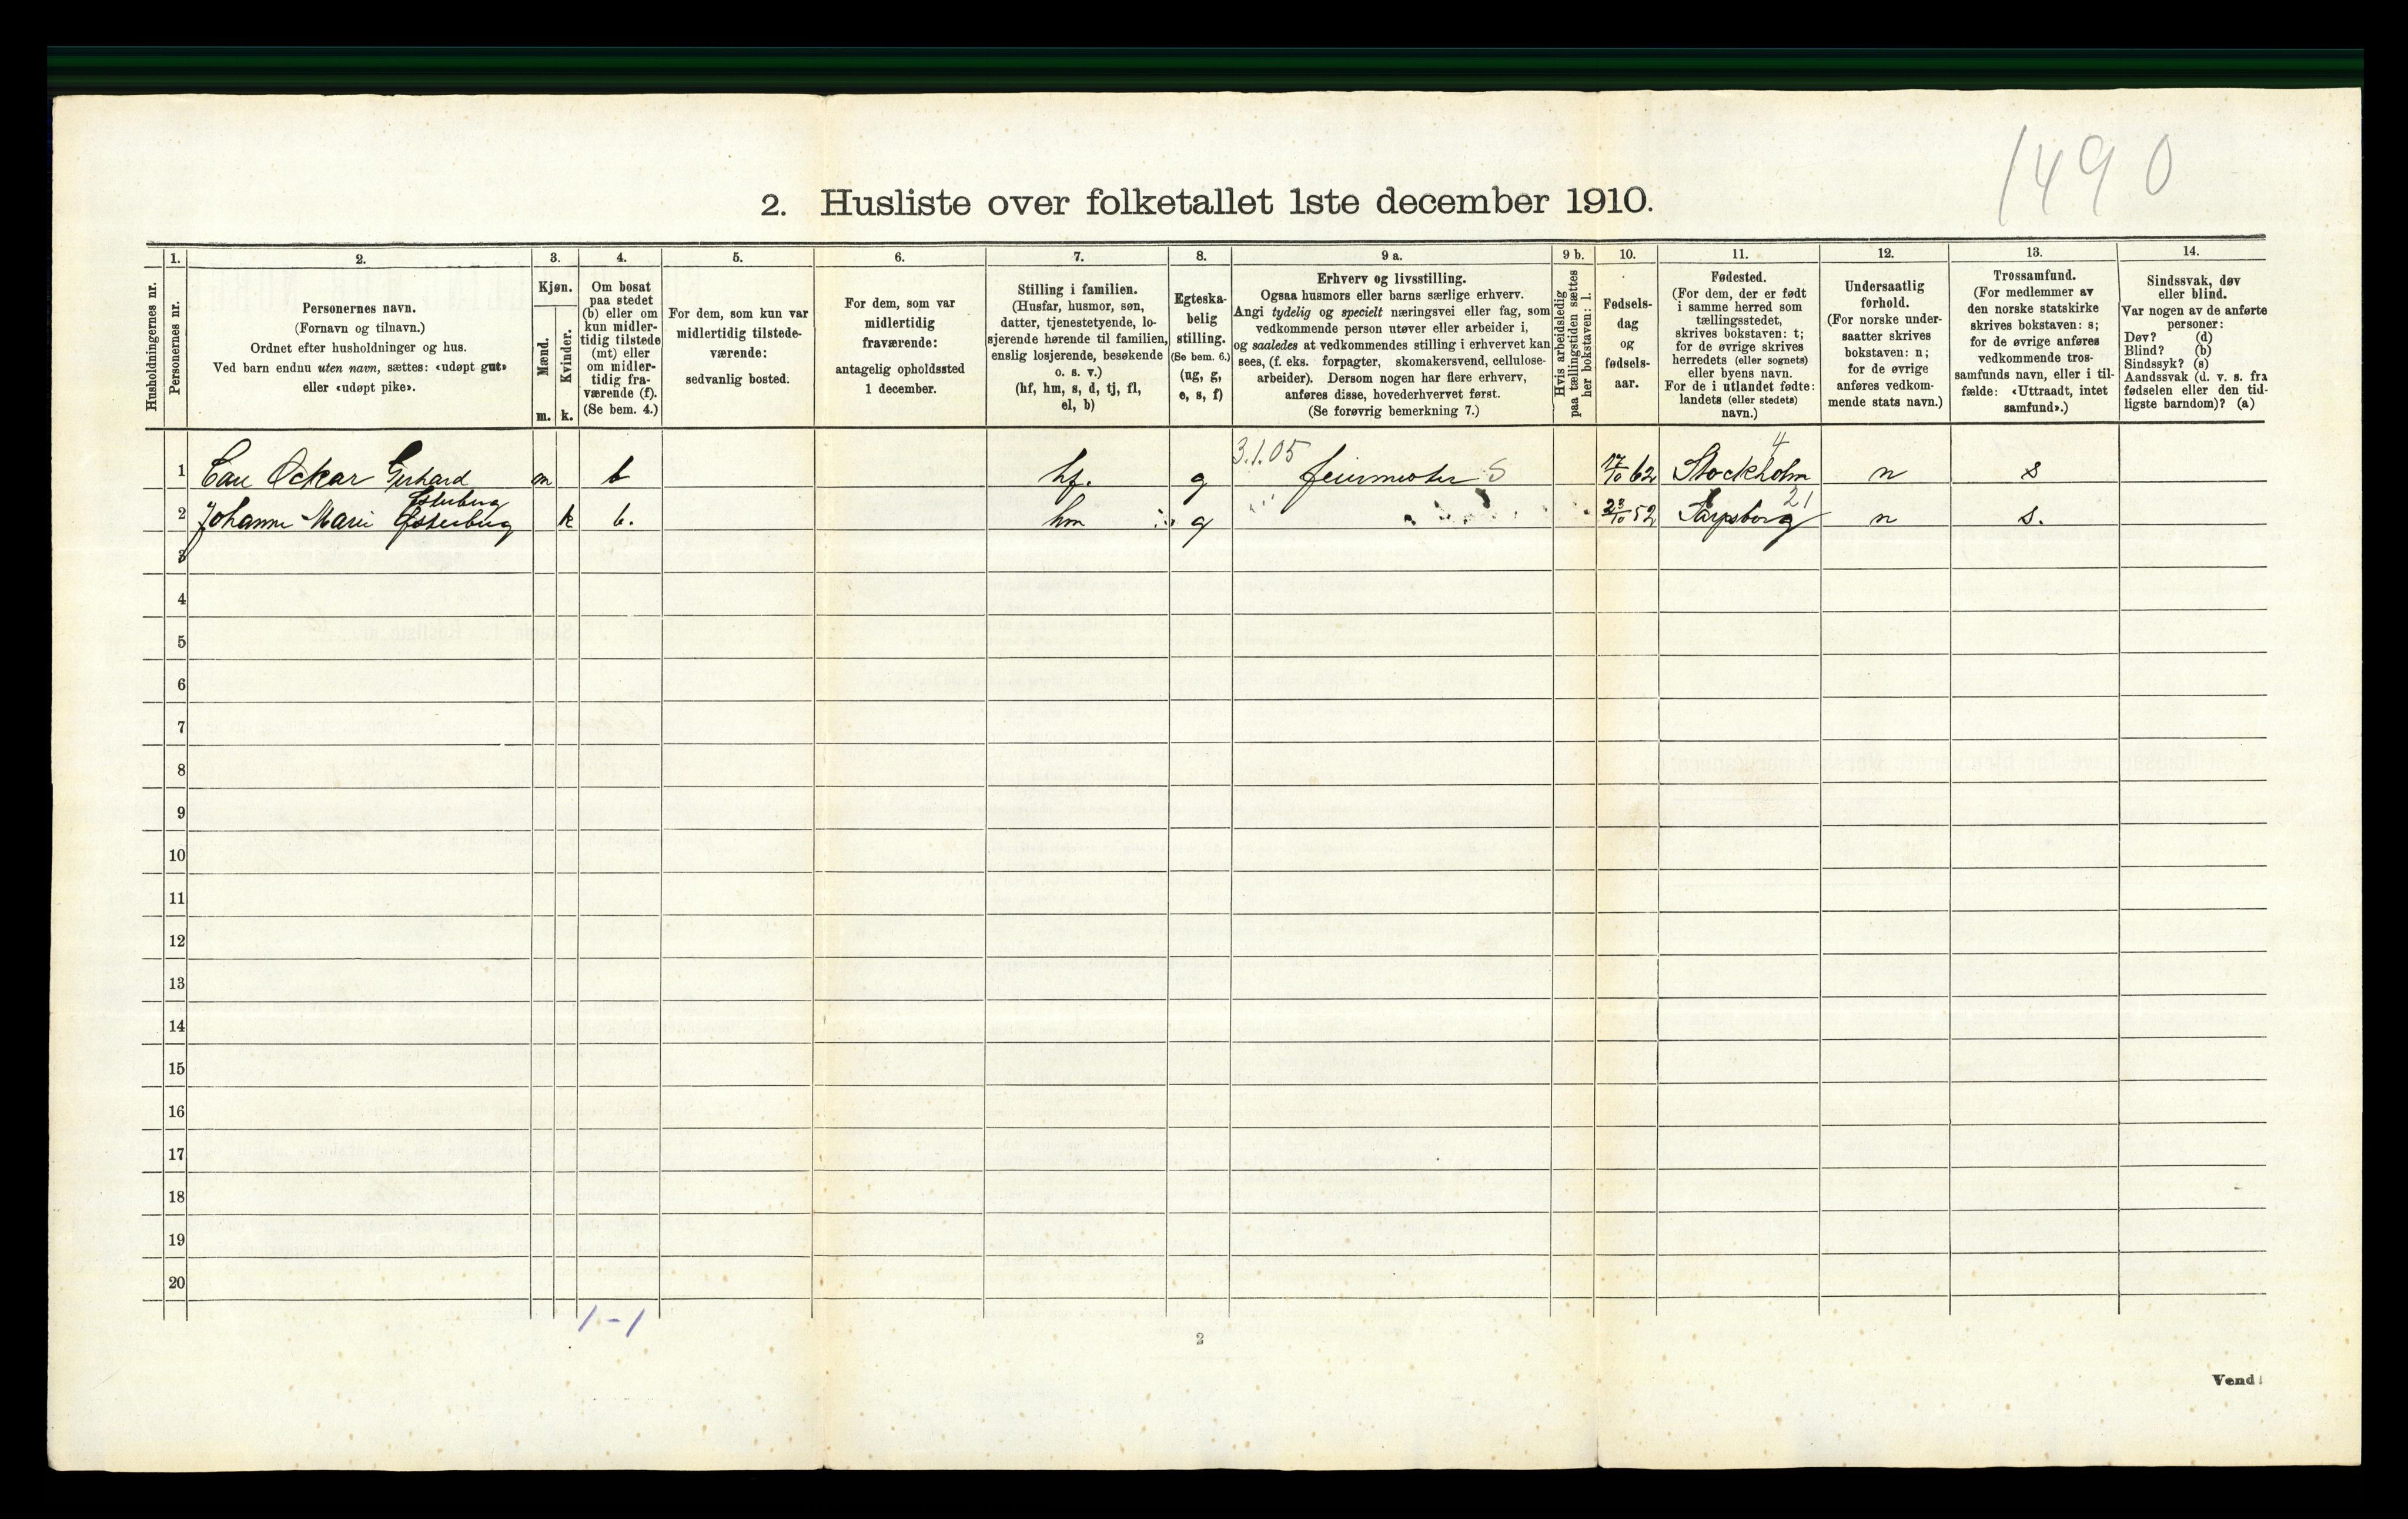 1490
2. Husliste over folketallet 1ste december 1910.
Husholdningernes nr.
1.
Personernes nr.
2.
Personernes navn.
(Fornavn og tilnavn.)
Ordnet efter husholdninger og hus.
Ved barn endnu uten navn, sættes: «udøpt gut»
eller «udøpt pike».
3.
Kjøn.
Mænd.
m.
Kvinder.
k.
4.
Om bosat
paa stedet
(b) eller om
kun midler-
tidig tilstede
(mt) eller
om midler-
tidig fra-
værende (f).
(Se bem. 4.)
5.
For dem, som kun var
midlertidig tilstede-
værende:
sedvanlig bosted.
6.
For dem, som var
midlertidig
fraværende:
antagelig opholdssted
1 december.
7.
Stilling i familien.
(Husfar, husmor, søn,
datter, tjenestetyende, lo-
sjerende hørende til familien,
enslig losjerende, besøkende
o. s. v.)
(hf, hm, s, d, tj, fl,
el, b)
8.
Egteska-
belig
stilling.
(Se bem. 6.)
(ug, g,
e, s, f)
9 a.
Erhverv og livsstilling.
Ogsaa husmors eller barns særlige erhverv.
Angi tydelig og specielt næringsvei eller fag, som
vedkommende person utøver eller arbeider i,
og saaledes at vedkommendes stilling i erhvervet kan
sees, (f. eks. forpagter, skomakersvend, cellulose-
arbeider). Dersom nogen har flere erhverv,
anføres disse, hovederhvervet først.
(Se forøvrig bemerkning 7.)
9 b.
Hvis arbeidsledig
paa tællingstiden sættes
her bokstaven: l.
10.
Fødsels-
dag
og
fødsels-
aar.
11.
Fødested.
(For dem, der er født
i samme herred som
tællingsstedet,
skrives bokstaven: t;
for de øvrige skrives
herredets (eller sognets)
eller byens navn.
For de i utlandet fødte:
landets (eller stedets)
navn.)
12.
Undersaatlig
forhold.
(For norske under-
saatter skrives
bokstaven: n;
for de øvrige
anføres vedkom-
mende stats navn.)
13.
Trossamfund.
(For medlemmer av
den norske statskirke
skrives bokstaven: s;
for de øvrige anføres
vedkommende tros-
samfunds navn, eller i til-
fælde: «Uttraadt, intet
samfund».)
14.
Sindssvak, døv
eller blind.
Var nogen av de anførte
personer:
Døv? (d)
Blind? (b)
Sindssyk? (s)
Aandssvak (d. v. s. fra
fødselen eller den tid-
ligste barndom)? (a)
3.1.05 4
1 Carl Oskar Gerhard m b hf. g feiermester S 17/10 62 Stockholm n s
Østerberg 21
2 Johanne Marie Østerberg k b. hm g 23/10 52 Sarpsborg n s.
3
4
5
6
7
8
9
10
11
12
13
14
15
16
17
18
19
20
1 - 1
2
Vend!